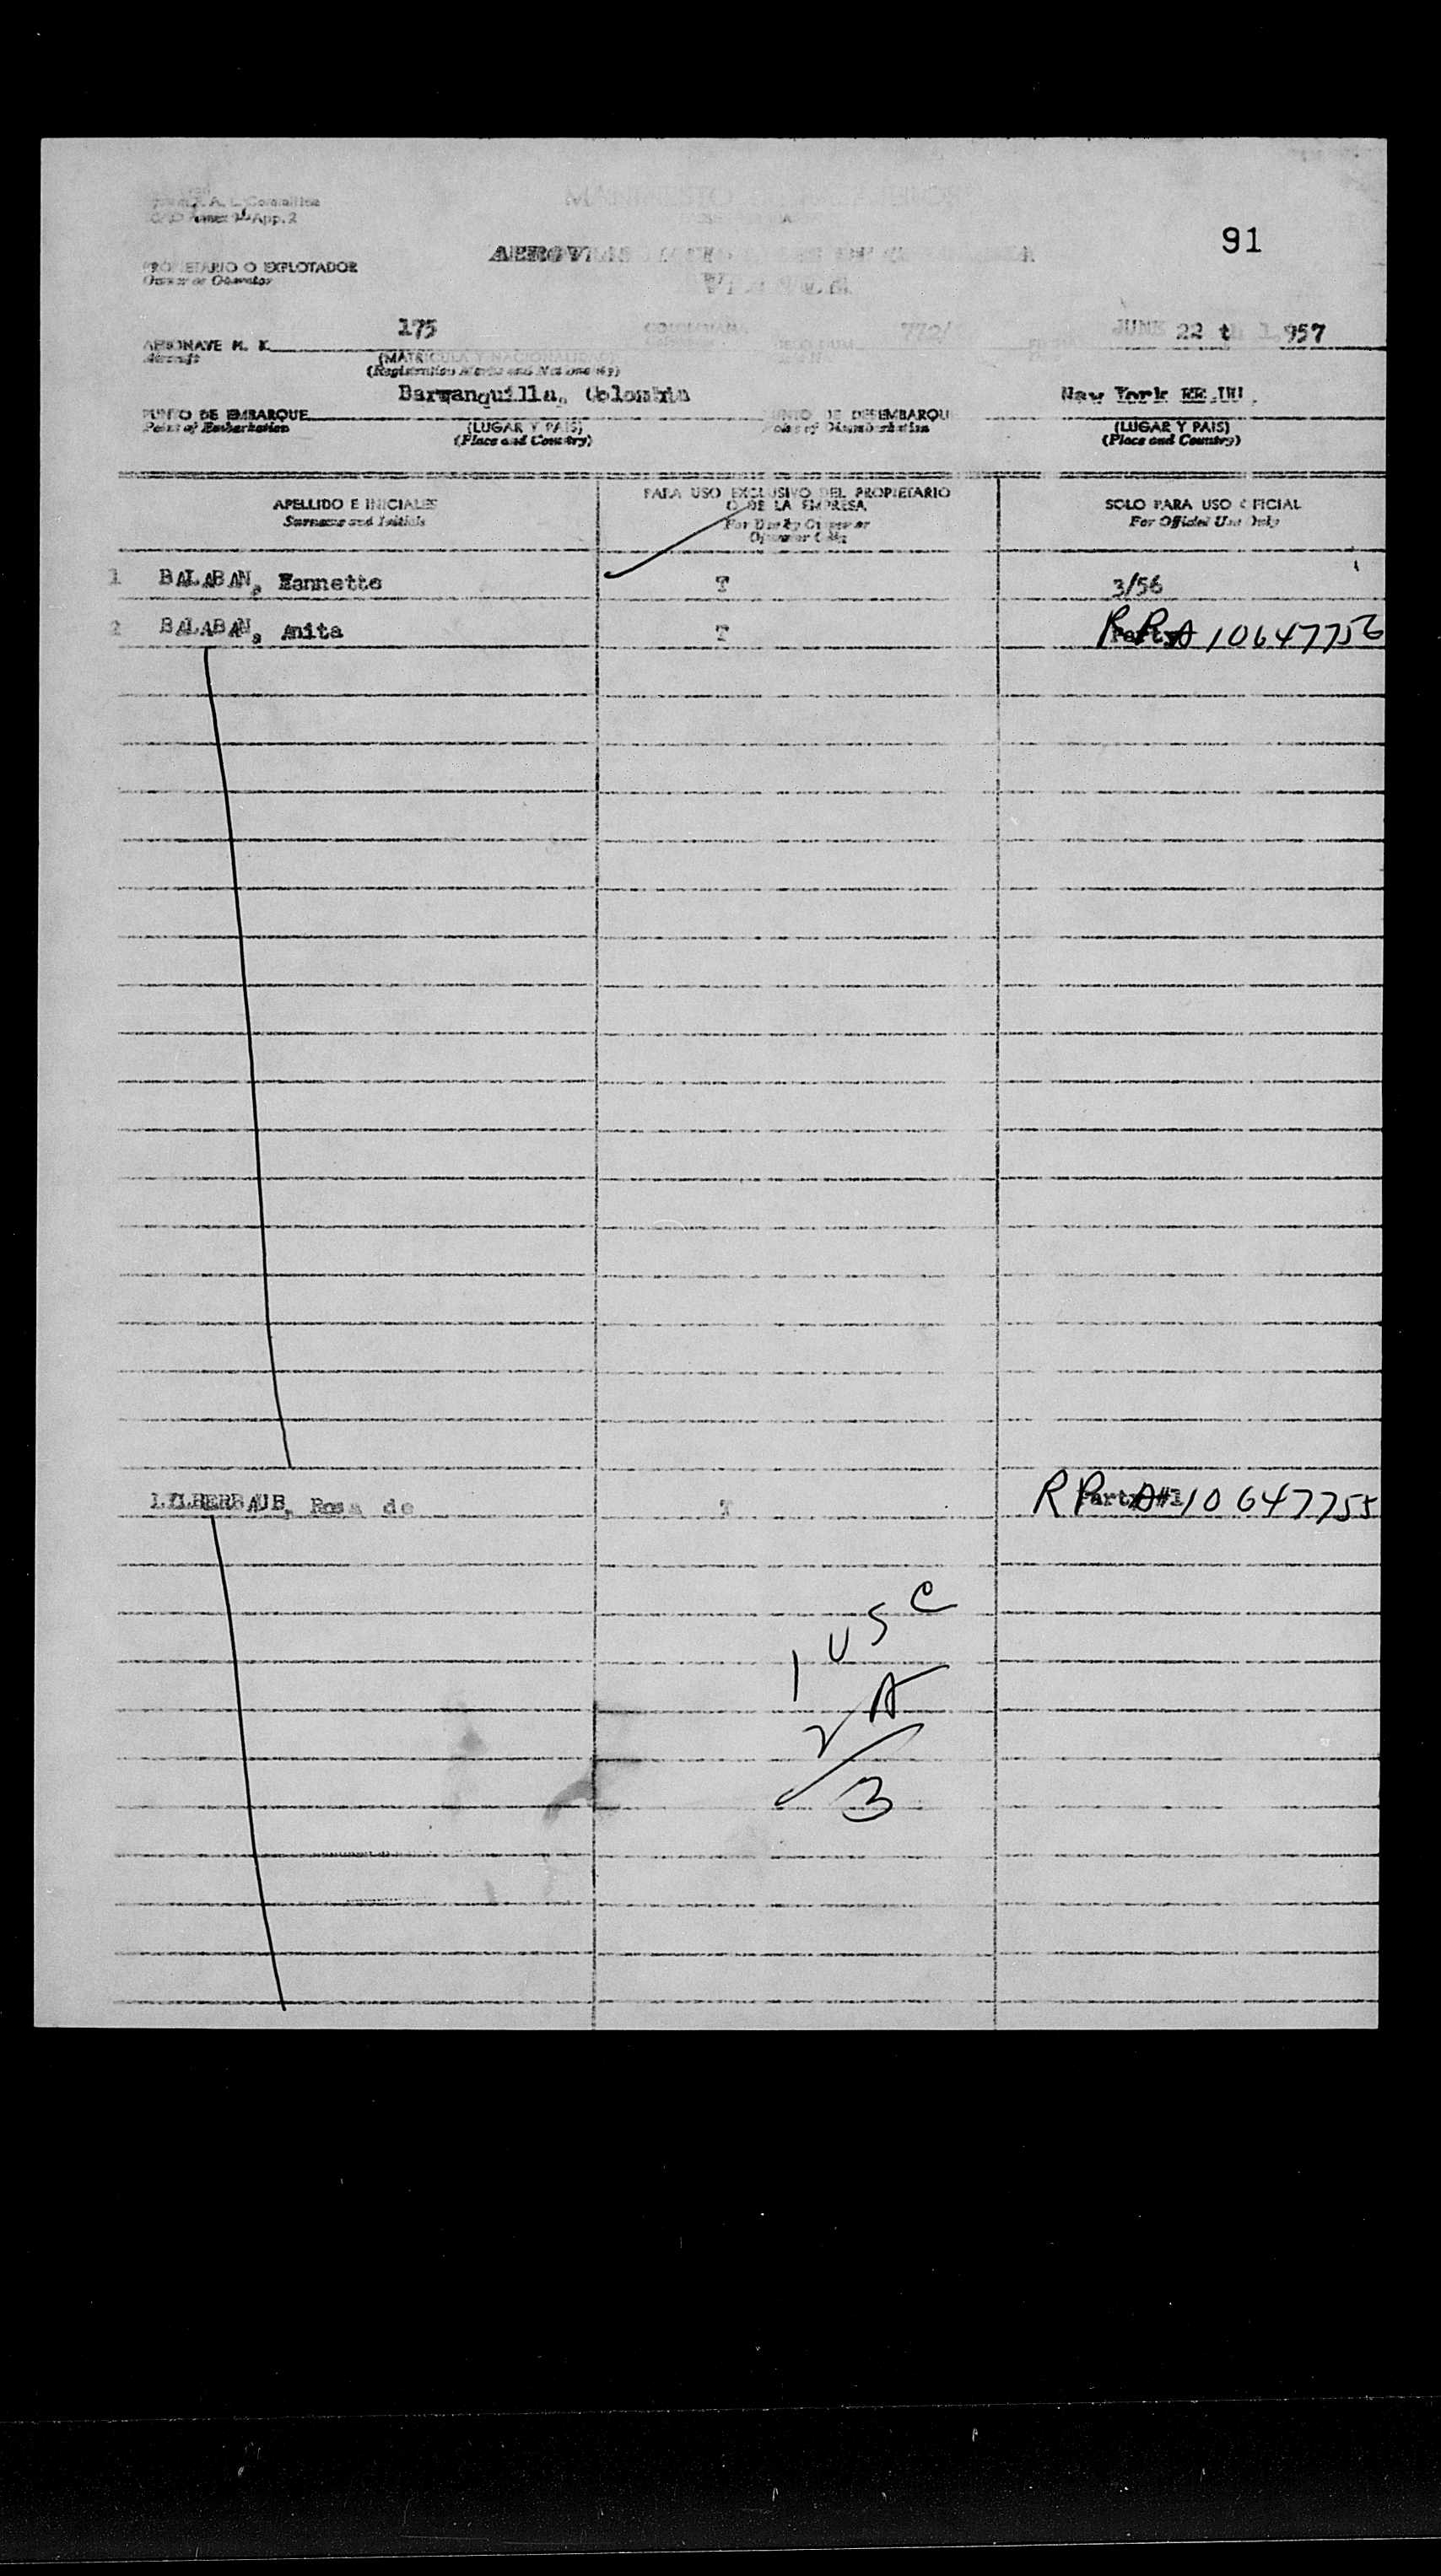 91
PROPIETARIO O EXPLOTADOR
Owner or Operator
175
JUNE 22 th 1957
Aircraft
(MATRICULA Y NACIONALIDAD)
(Registration Marks and Nationality)
Barranquilla, Colombia
New York EE.UU.
PUNTO DE EMBARQUE
PUNTO DE DESEMBARQUE
Point of Embarkation
(LUGAR Y PAIS)
Point of Disembarkation
(LUGAR Y PAIS)
(Place and Country)
(Place and Country)
APELLIDO E INICIALES
Surname and Initials
PARA USO EXCLUSIVO DEL PROPIETARIO
O DE LA EMPRESA
For Use by Owner or
Operator Only
SOLO PARA USO OFICIAL
For Official Use Only
1 BALABAN, Nannette T 3/56
2 BALABAN, Anita T RP A 10647756
Rosa de T RP A 10647755
1 USC
2 A
3